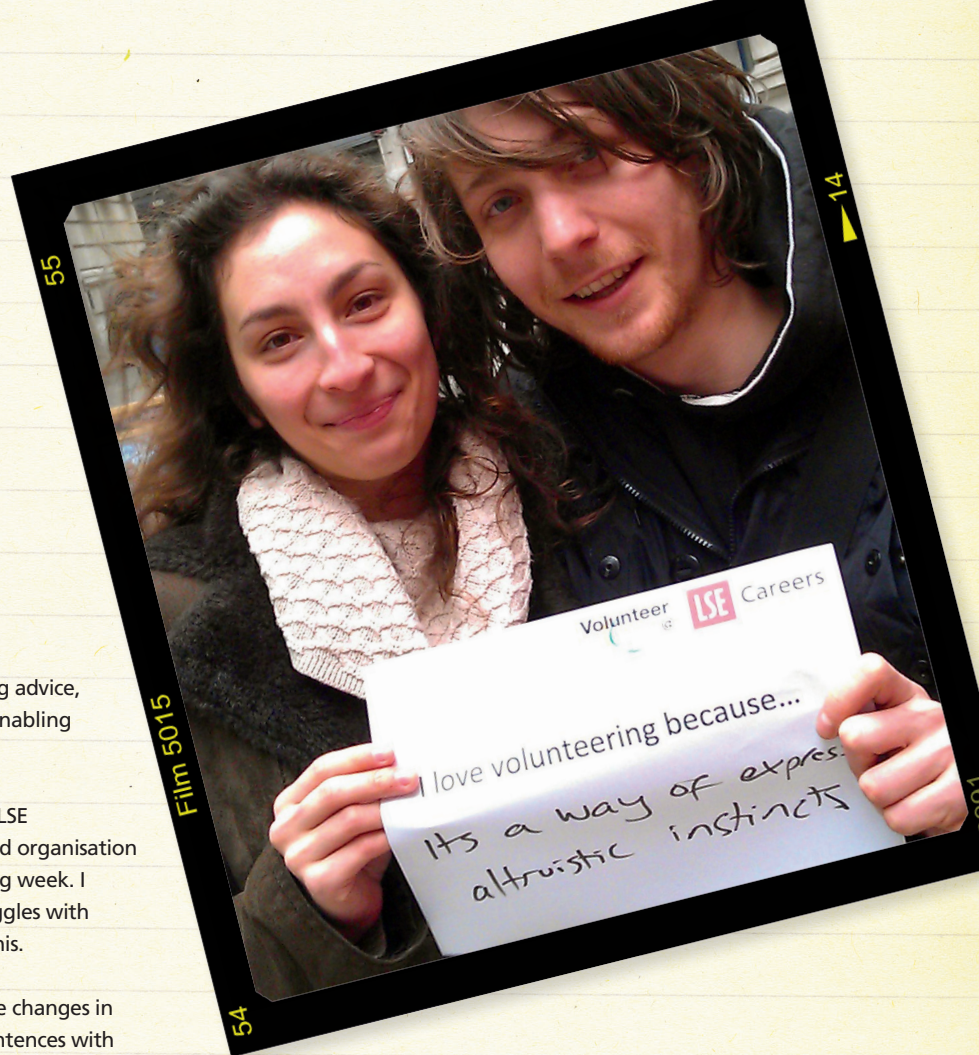 g advice,
nabling
LSE
d organisation
g week. I
ggles with
his.
e changes in
ntences with
55
14
Film 5015
54
Volunteer LSE Careers
I love volunteering because...
Its a way of expres
altruistic instincts